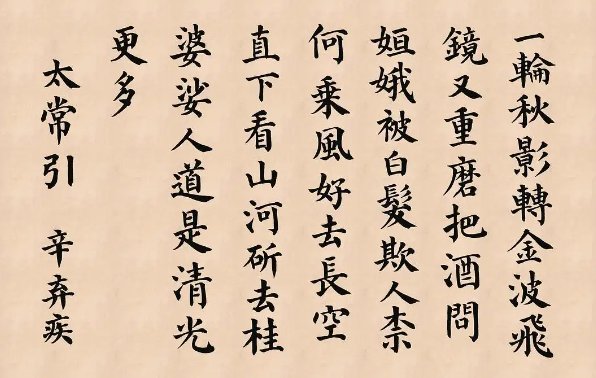 一輪秋影轉金波飛
鏡又重磨把酒問
姮娥被白髮欺人柰
何乘風好去長空
直下看山河斫去桂
婆娑人道是清光
更多
太常引 辛弃疾